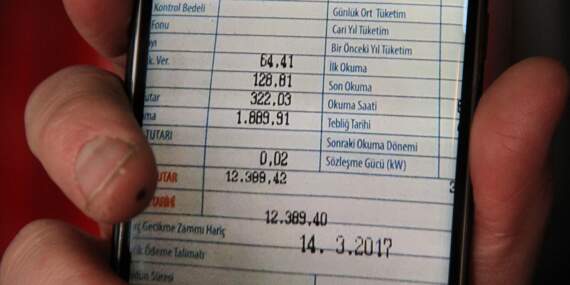 Kontrol Bedeli
Günlük Ort Tüketim
Fonu
Cari Yıl Tüketim
Bir Önceki Yıl Tüketim
Ver. 64,41 İlk Okuma
128,81 Son Okuma
322,03 Okuma Saati
1.889,91 Tebliğ Tarihi
TUTARI
Sonraki Okuma Dönemi
0,02 Sözleşme Gücü (kW)
12.389,42
12.389,40
Gecikme Zammı Hariç
14. 3.2017
Ödeme Talimatı
Süresi